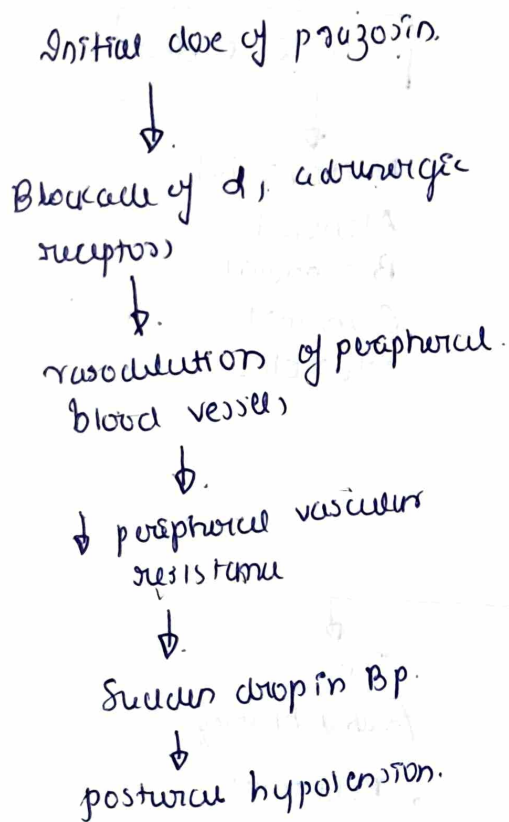 Initial dose of prazosin.
↓
Blockade of α1 adrenergic
receptors
↓
vasodilution of peripheral
blood vessels
↓
↓ peripheral vascular
resistance
↓
Sudden drop in BP.
↓
postural hypotension.